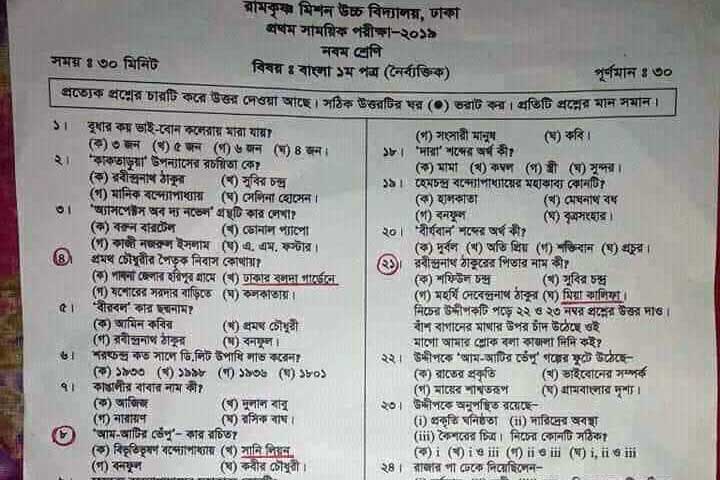 রামকৃষ্ণ মিশন উচ্চ বিদ্যালয়, ঢাকা
প্রথম সাময়িক পরীক্ষা-২০১৯
নবম শ্রেণি
সময় ঃ ৩০ মিনিট
বিষয় ঃ বাংলা ১ম পত্র (নৈর্ব্যক্তিক)
পূর্ণমান ঃ ৩০
প্রত্যেক প্রশ্নের চারটি করে উত্তর দেওয়া আছে। সঠিক উত্তরটির ঘর (●) ভরাট কর। প্রতিটি প্রশ্নের মান সমান।
১। বুধার কয় ভাই-বোন কলেরায় মারা যায়?
(ক) ৩ জন (খ) ৫ জন (গ) ৬ জন (ঘ) ৪ জন।
২। 'কাকতাড়ুয়া' উপন্যাসের রচয়িতা কে?
(ক) রবীন্দ্রনাথ ঠাকুর (খ) সুবির চন্দ্র
(গ) মানিক বন্দ্যোপাধ্যায় (ঘ) সেলিনা হোসেন।
৩। 'অ্যাসপেক্টস অব দ্য নভেল' গ্রন্থটি কার লেখা?
(ক) বরুন বারটেল (খ) ডোনাল প্যাপো
(গ) কাজী নজরুল ইসলাম (ঘ) এ. এম. ফস্টার।
৪। প্রমথ চৌধুরীর পৈতৃক নিবাস কোথায়?
(ক) পাবনা জেলার হরিপুর গ্রামে (খ) ঢাকার বলদা গার্ডেনে
(গ) যশোরের সরদার বাড়িতে (ঘ) কলকাতায়।
৫। 'বীরবল' কার ছদ্মনাম?
(ক) আমিন কবির (খ) প্রমথ চৌধুরী
(গ) রবীন্দ্রনাথ ঠাকুর (ঘ) বনফুল।
৬। শরৎচন্দ্র কত সালে ডি.লিট উপাধি লাভ করেন?
(ক) ১৯৩৩ (খ) ১৯৯৮ (গ) ১৯৩৬ (ঘ) ১৮০১
৭। কাঙালীর বাবার নাম কী?
(ক) আজিজ (খ) দুলাল বাবু
(গ) নারায়ণ (ঘ) রসিক বাঘ।
৮। 'আম-আটির ভেঁপু'- কার রচিত?
(ক) বিভূতিভূষণ বন্দ্যোপাধ্যায় (খ) সানি লিয়ন
(গ) বনফুল (ঘ) কবীর চৌধুরী।
(গ) সংসারী মানুষ (ঘ) কবি।
১৮। 'দারা' শব্দের অর্থ কী?
(ক) মামা (খ) কম্বল (গ) স্ত্রী (ঘ) সুন্দর।
১৯। হেমচন্দ্র বন্দ্যোপাধ্যায়ের মহাকাব্য কোনটি?
(ক) হালকাতা (খ) মেঘনাথ বধ
(গ) বনফুল (ঘ) বৃত্রসংহার।
২০। 'বীর্যবান' শব্দের অর্থ কী?
(ক) দুর্বল (খ) অতি প্রিয় (গ) শক্তিবান (ঘ) প্রচুর।
২১। রবীন্দ্রনাথ ঠাকুরের পিতার নাম কী?
(ক) শফিউল চন্দ্র (খ) সুবির চন্দ্র
(গ) মহর্ষি দেবেন্দ্রনাথ ঠাকুর (ঘ) মিয়া কালিফা।
নিচের উদ্দীপকটি পড়ে ২২ ও ২৩ নম্বর প্রশ্নের উত্তর দাও।
বাঁশ বাগানের মাথার উপর চাঁদ উঠেছে ওই
মাগো আমার শ্লোক বলা কাজলা দিদি কই?
২২। উদ্দীপকে 'আম-আটির ভেঁপু' গল্পের ফুটে উঠেছে-
(ক) রাতের প্রকৃতি (খ) ভাইবোনের সম্পর্ক
(গ) মায়ের শাশ্বতরূপ (ঘ) গ্রামবাংলার দৃশ্য।
২৩। উদ্দীপকে অনুপস্থিত রয়েছে-
(i) প্রকৃতি ঘনিষ্ঠতা (ii) দারিদ্রের অবস্থা
(iii) কৈশরের চিত্র। নিচের কোনটি সঠিক?
(ক) i (খ) i ও iii (গ) ii ও iii (ঘ) i, ii ও iii
২৪। রাজার পা ঢেকে দিয়েছিলেন-